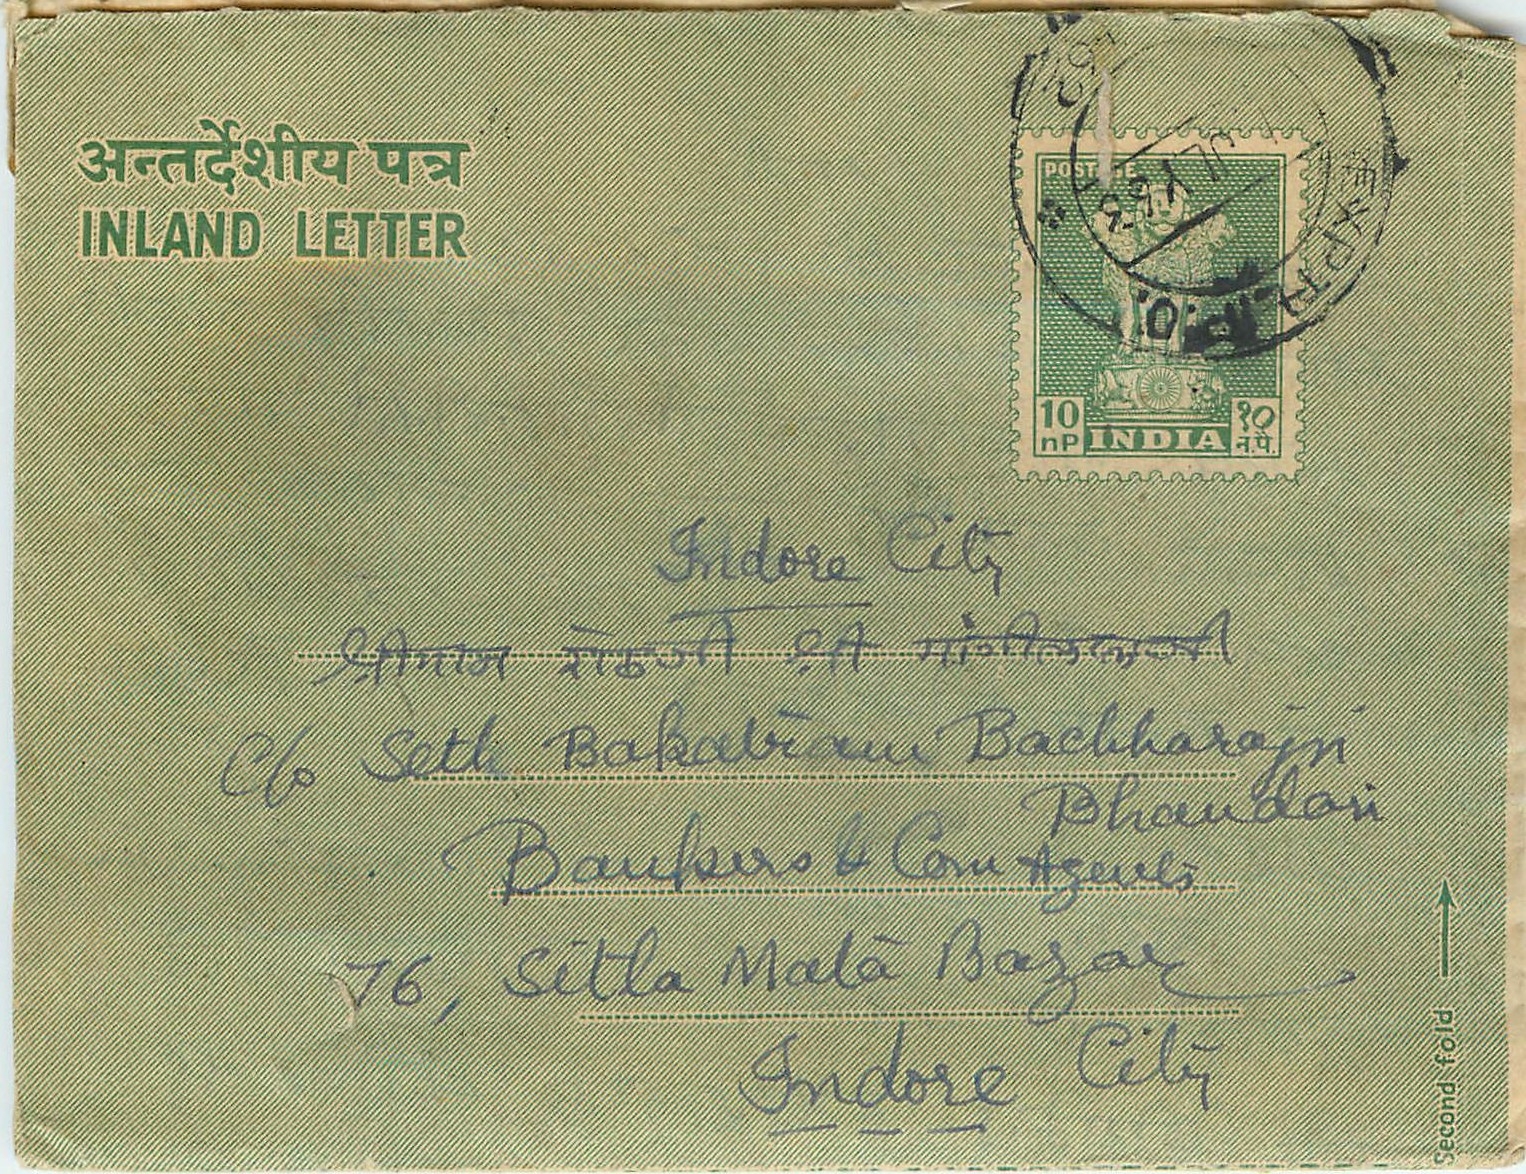 अन्तर्देशीय पत्र
INLAND LETTER
POSTAGE
JULY 63
EXPTL. P.O.
10 nP
INDIA
१० न.पै.
Indore City
श्रीमान सेठजी श्री मांगीलालजी
C/o Seth Bakatram Bachharajji
Bhandari
Bankers & Com Agents
76, Sitla Mata Bazar
Indore City
Second fold